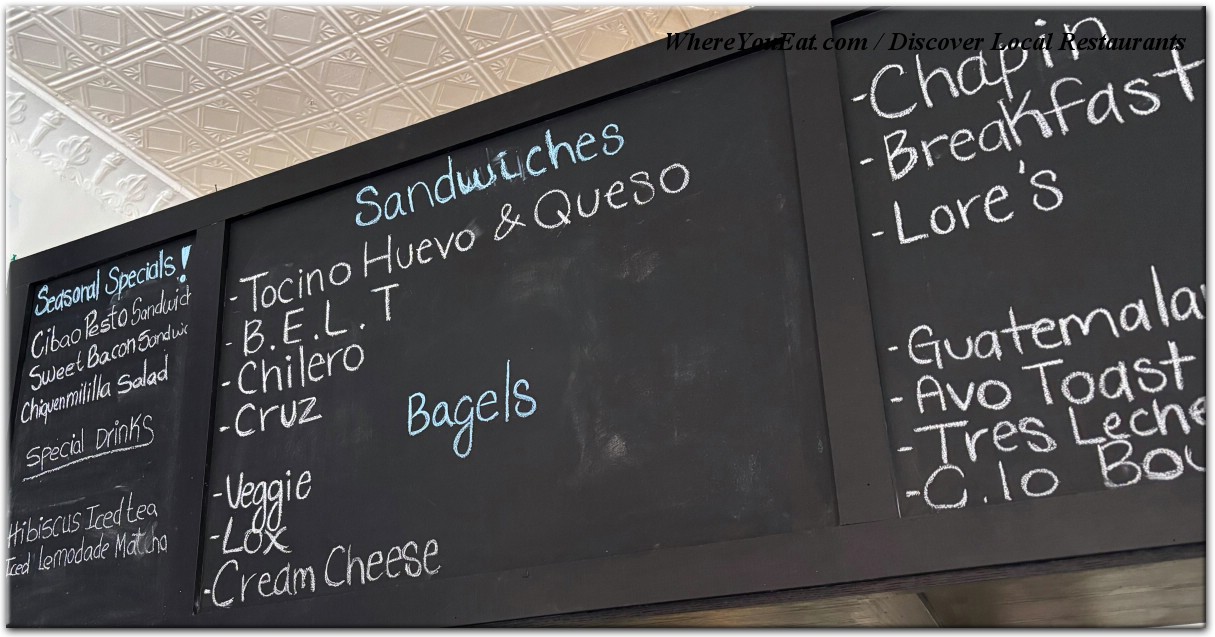 WhereYouEat.com / Discover Local Restaurants
Seasonal Specials!
Cibao Pesto Sandwich
Sweet Bacon Sandwic
Chiquenmililla Salad
Special Drinks
Hibiscus Iced tea
Iced Lemodade Matcha
Sandwiches
-Tocino Huevo & Queso
-B.E.L.T
-Chilero
-Cruz
Bagels
-Veggie
-Lox
-Cream Cheese
-Chapin
-Breakfast
-Lore's
-Guatemala
-Avo Toast
-Tres Leche
-C.lo Bou